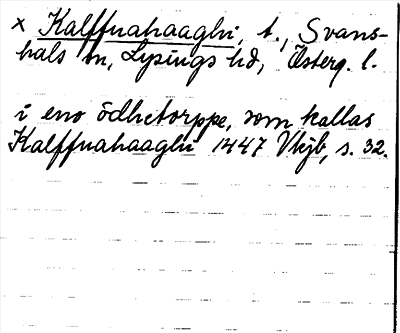 × Kalffnahaaghi, t., Svans-
hals sn, Lysings hd, Österg. l.
i eno ödhetorppe, som kallas
Kalffnahaaghi 1447 Vkjb, s. 32.